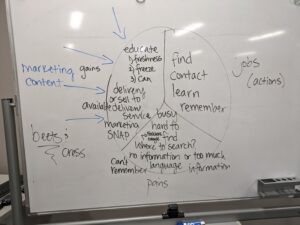 educate
1) freshness
2) freeze
3) can
marketing
content
gains
delivery
or sell to
available delivery
service
marketing
SNAP
find
contact
learn
remember
jobs
(actions)
busy
hard to
find
where to search?
no information or too much
language information
Can't
remember
pains